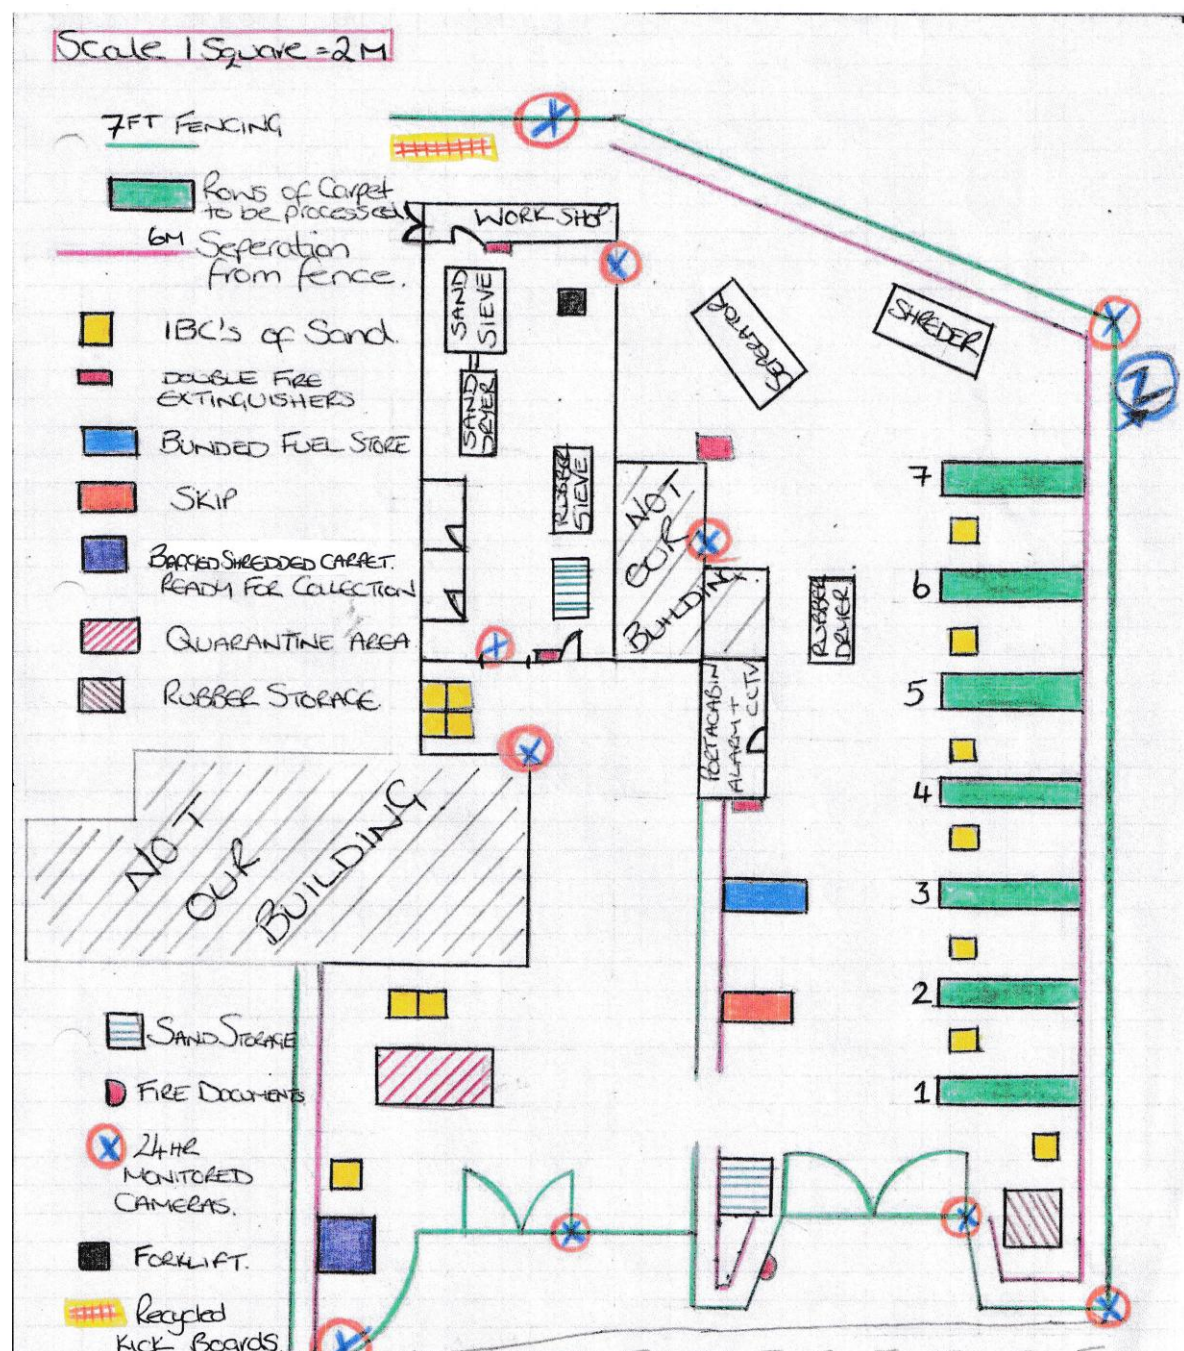 Scale 1 Square = 2M
7FT FENCING
Rows of Carpet
to be processed
6M Seperation
from fence.
IBC's of Sand.
DOUBLE FIRE
EXTINGUISHERS
BUNDED FUEL STORE
SKIP
BAGGED SHREDDED CARPET.
READY FOR COLLECTION
QUARANTINE AREA
RUBBER STORAGE.
SAND STORAGE
FIRE DOCUMENTS
24HR
MONITORED
CAMERAS.
FORKLIFT.
Recycled
KICK BOARDS.
WORK SHOP.
SAND
SIEVE
SAND
DRYER
RUBBER
SIEVE
SEPERATOR
SHREDER
Z
NOT
OUR
BUILDING
RUBBER
DRYER
PORTACABIN
ALARM + CCTV
NOT
OUR
BUILDING
7
6
5
4
3
2
1